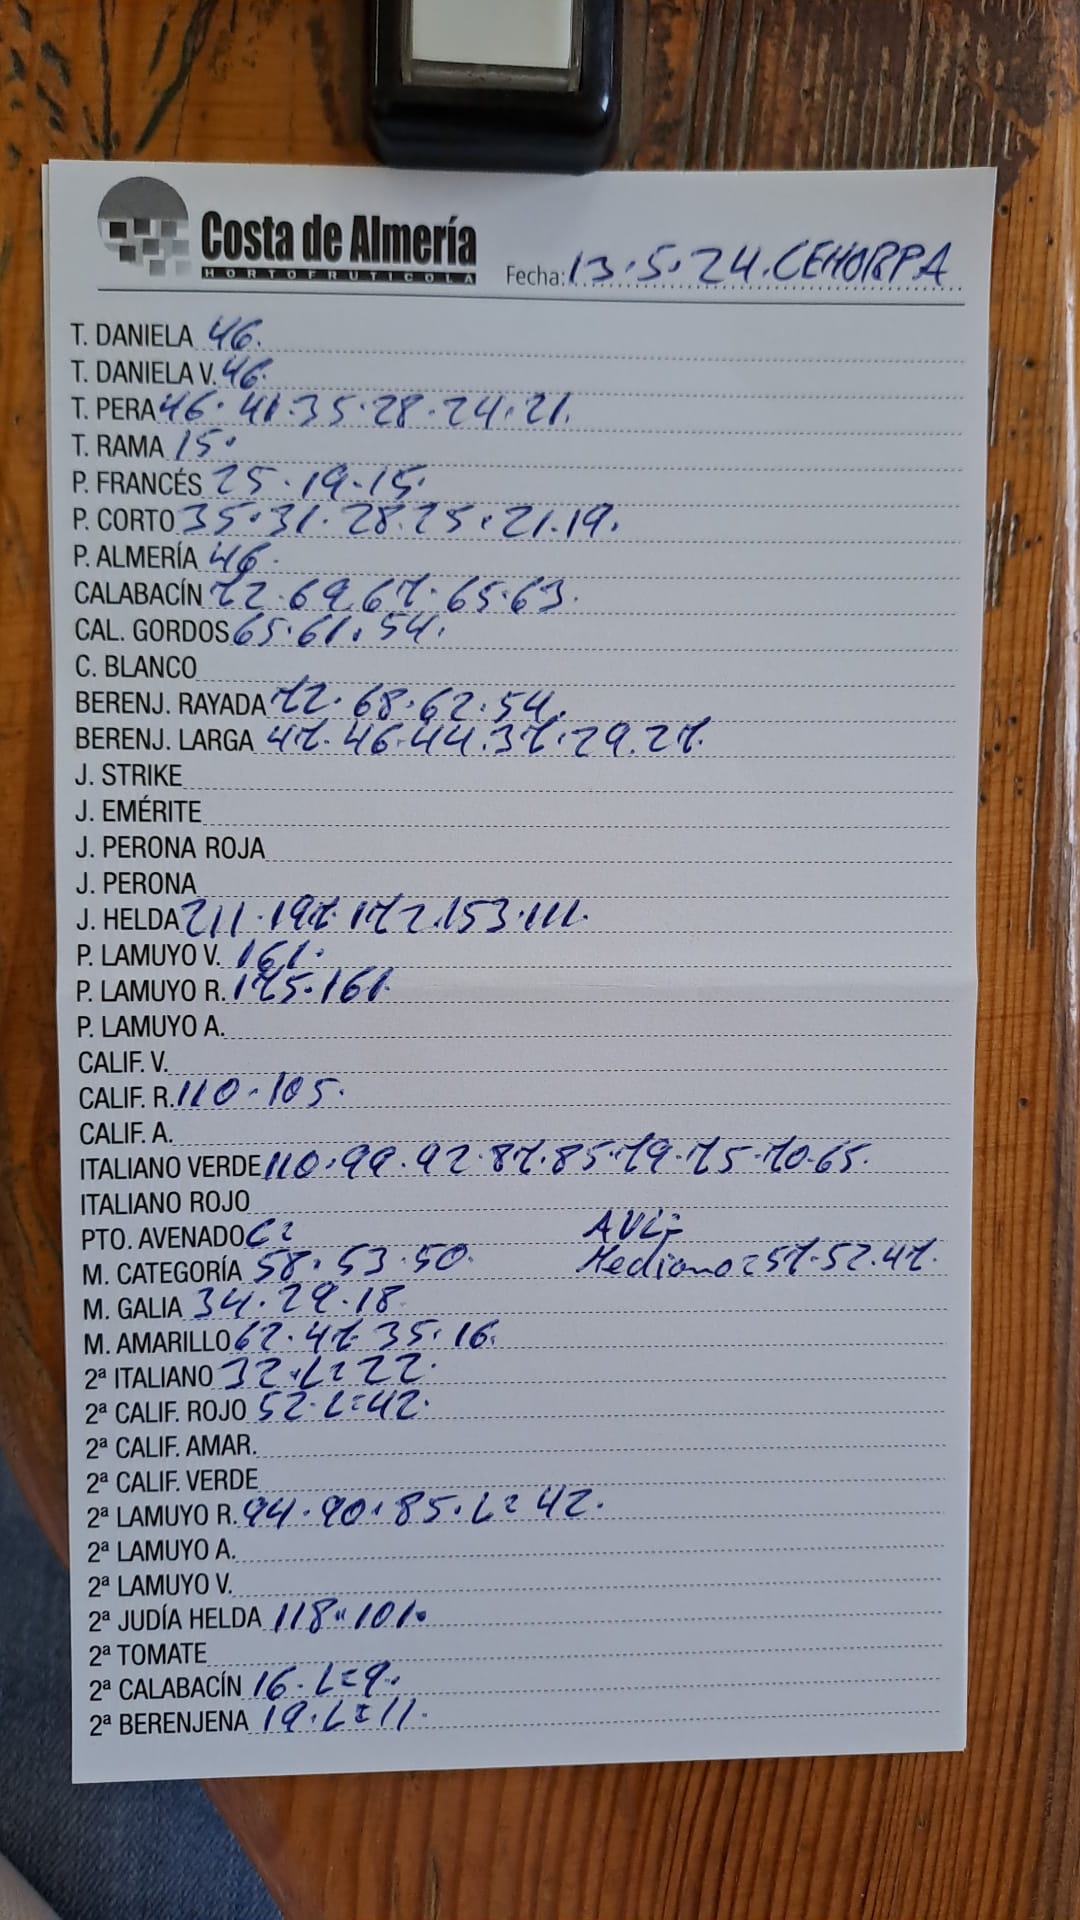 Costa de Almería
HORTOFRUTICOLA
Fecha: 13.5.24. CEHORPA
T. DANIELA 46.
T. DANIELA V. 46.
T. PERA 46. 41. 35. 28. 24. 21.
T. RAMA 15.
P. FRANCÉS 25. 19. 15.
P. CORTO 35. 31. 28. 25. 21. 19.
P. ALMERÍA 46.
CALABACÍN 72. 69. 67. 65. 63.
CAL. GORDOS 65. 61. 54.
C. BLANCO
BERENJ. RAYADA 72. 68. 62. 54.
BERENJ. LARGA 47. 46. 44. 37. 29. 27.
J. STRIKE
J. EMÉRITE
J. PERONA ROJA
J. PERONA
J. HELDA 211. 197. 172. 153. 111.
P. LAMUYO V. 161.
P. LAMUYO R. 175. 161.
P. LAMUYO A.
CALIF. V.
CALIF. R. 110. 105.
CALIF. A.
ITALIANO VERDE 110. 99. 92. 87. 85. 79. 75. 70. 65.
ITALIANO ROJO
PTO. AVENADO AVL=
M. CATEGORÍA 58. 53. 50. Mediano = 57. 52. 47.
M. GALIA 34. 29. 18
M. AMARILLO 62. 47. 35. 16.
2ª ITALIANO 32. L= 22.
2ª CALIF. ROJO 52. L= 42.
2ª CALIF. AMAR.
2ª CALIF. VERDE
2ª LAMUYO R. 94. 90. 85. L= 42.
2ª LAMUYO A.
2ª LAMUYO V.
2ª JUDÍA HELDA 118. 101.
2ª TOMATE
2ª CALABACÍN 16. L= 9.
2ª BERENJENA 19. L= 11.